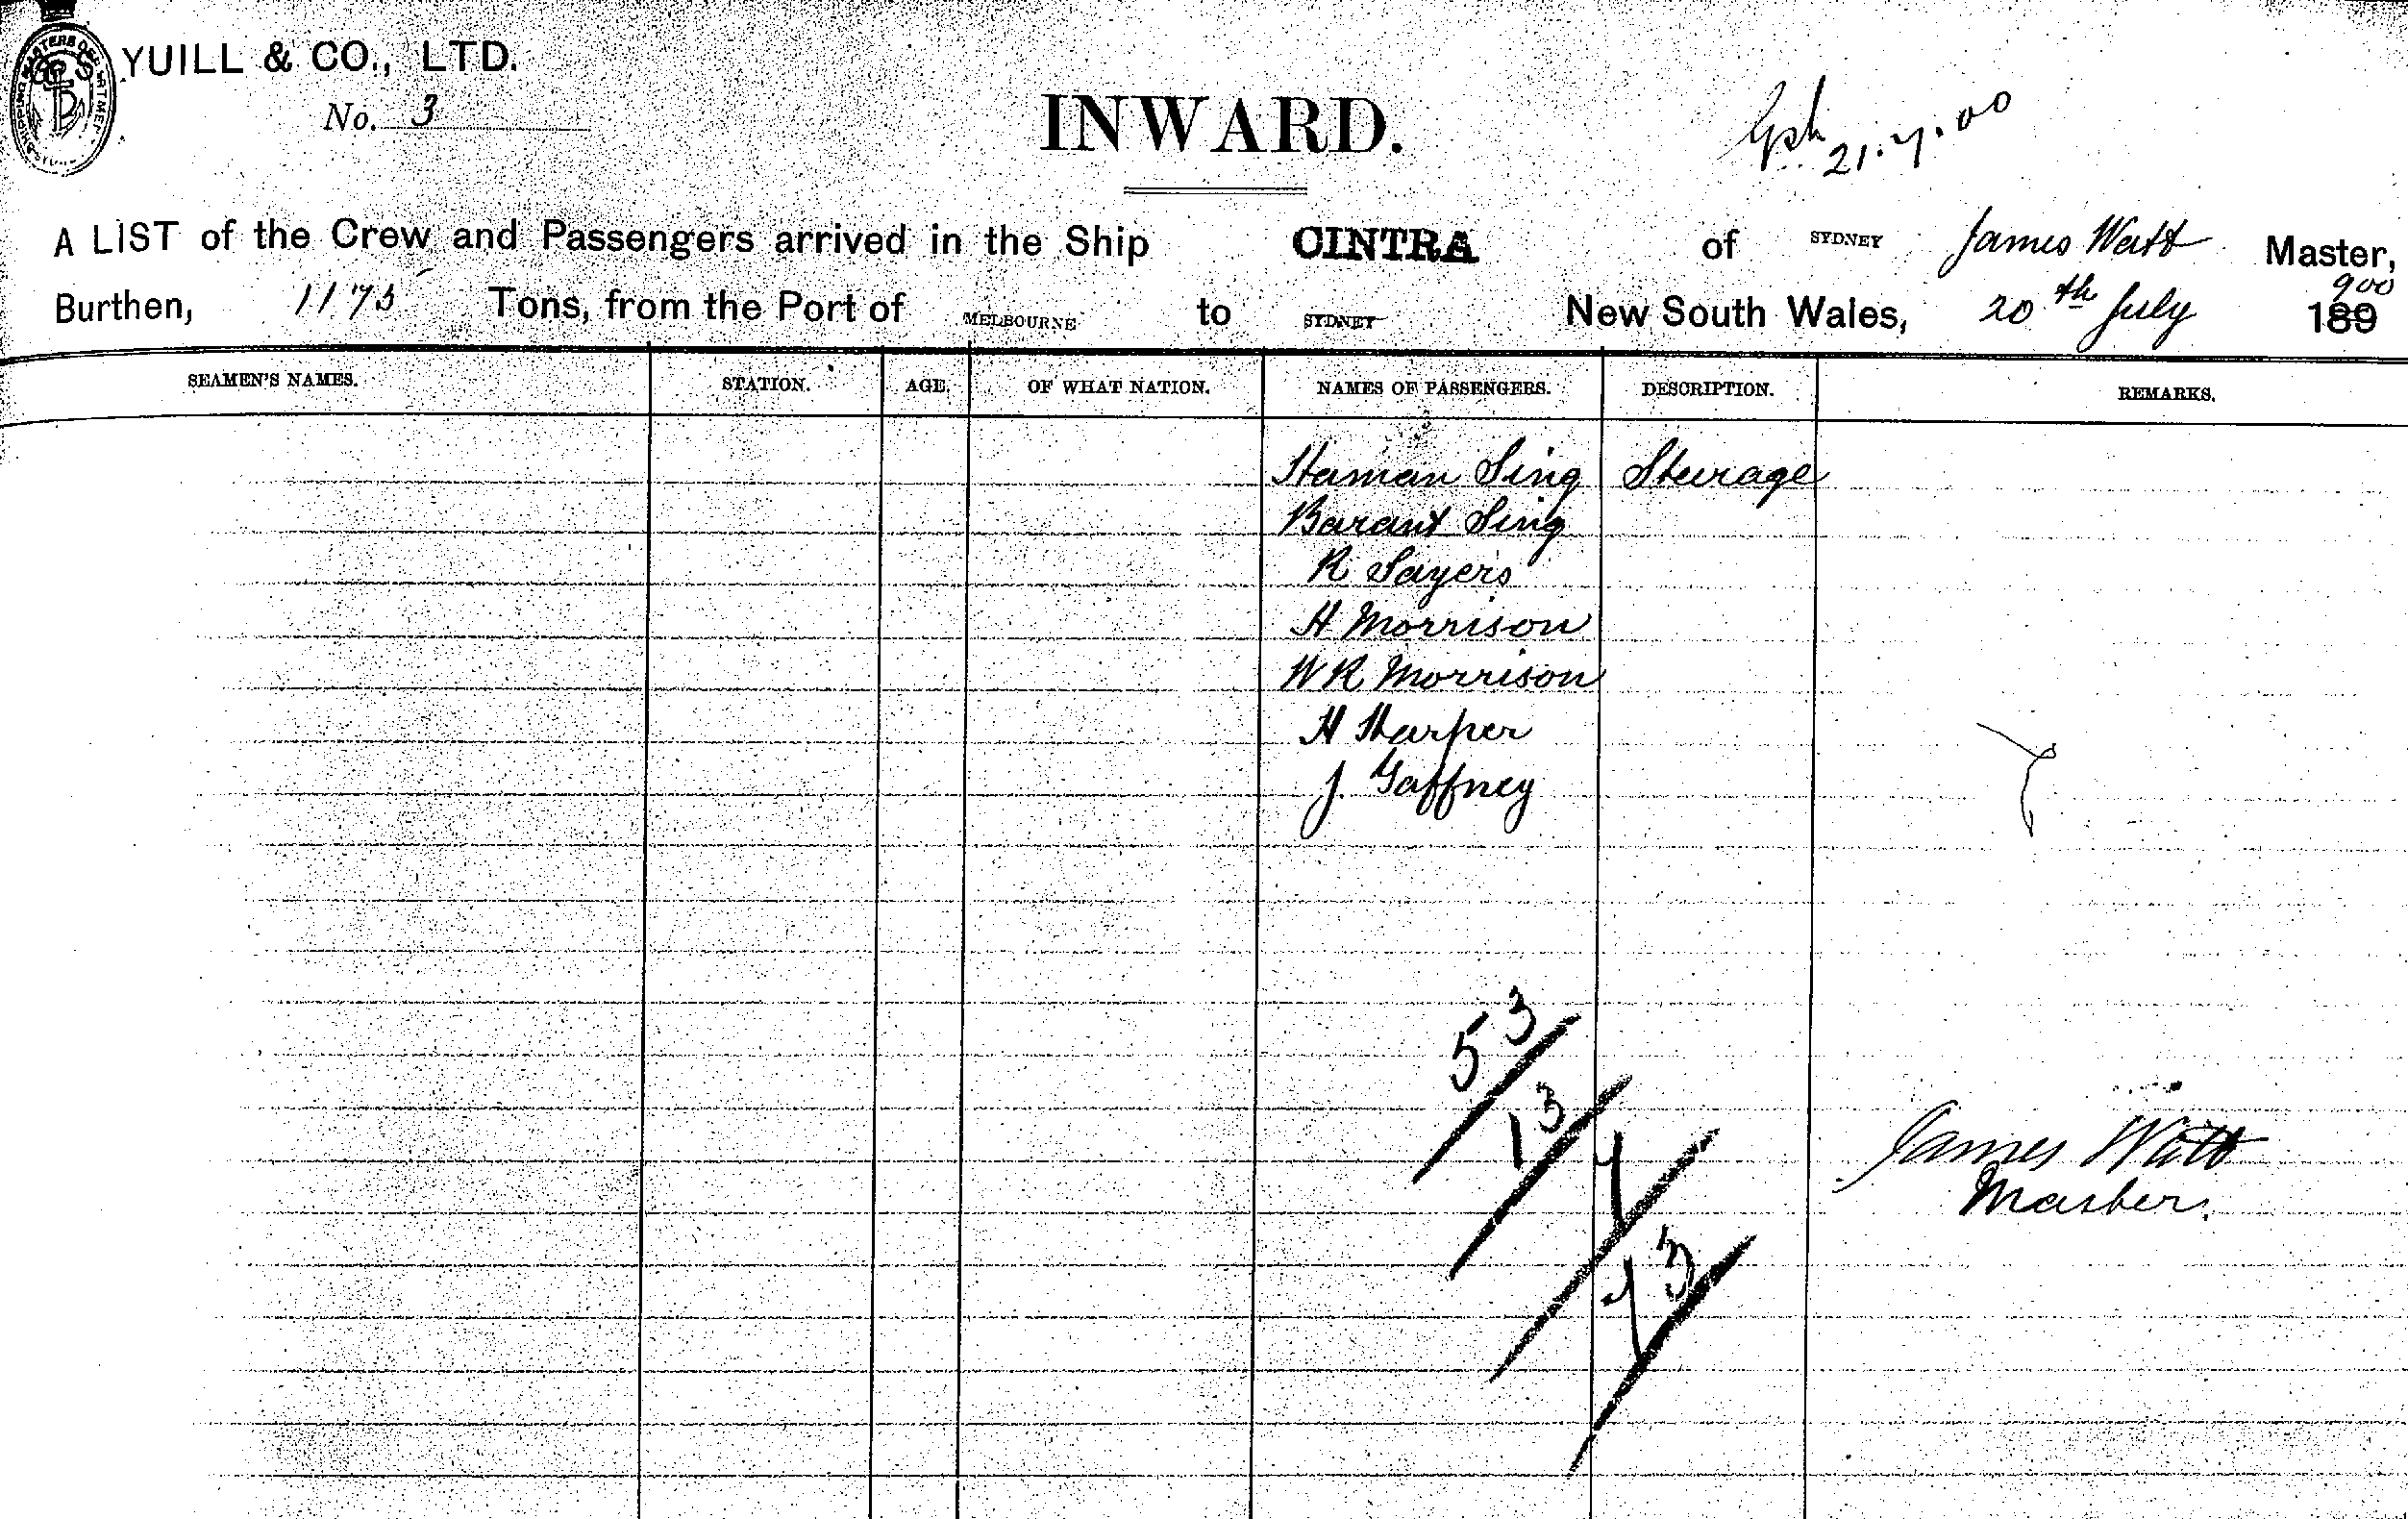 YUILL & CO., LTD.
No. 3
INWARD.
21.7.00
A LIST of the Crew and Passengers arrived in the Ship CINTRA of SYDNEY James Watt Master,
Burthen, 1175 Tons, from the Port of MELBOURNE to SYDNEY New South Wales, 20th July 189 900
SEAMEN'S NAMES. STATION. AGE. OF WHAT NATION. NAMES OF PASSENGERS. DESCRIPTION. REMARKS.
Haman Sing Steerage
Barant Sing
R Sayers
H Morrison
W R Morrison
H Harper
J. Gaffney
53
13
7
73
James Watt
Master.